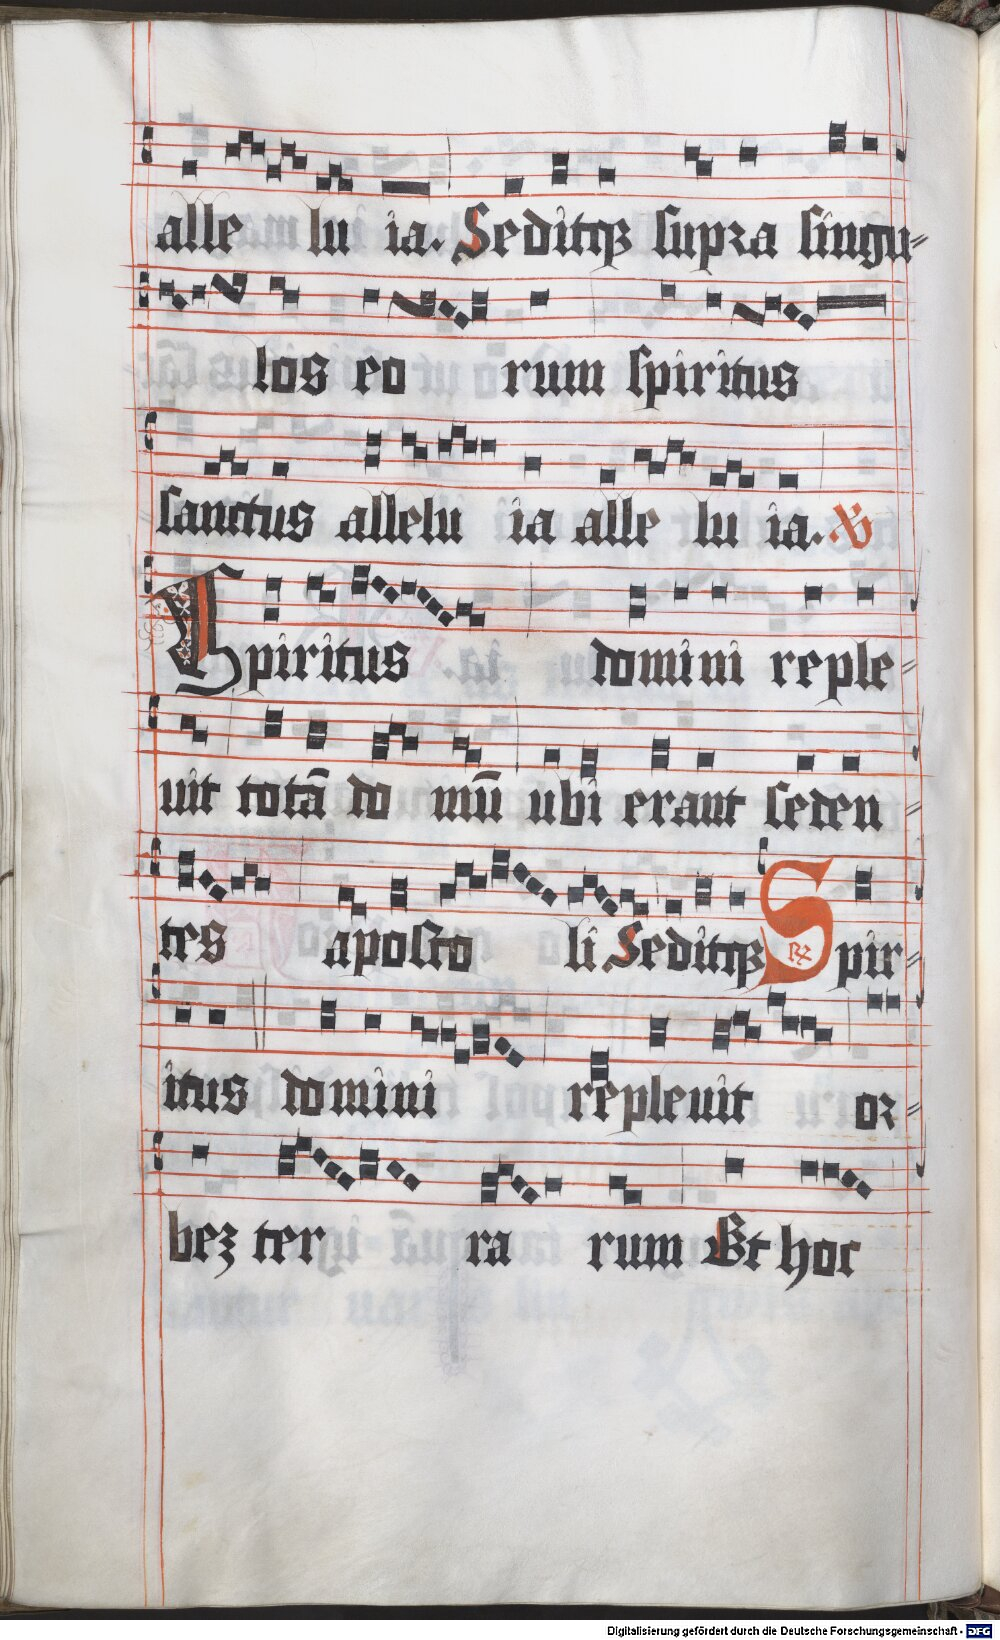 alle lu ia. Seditqꝫ supra singu⸗
los eo rum spiritus
sanctus allelu ia alle lu ia. ℣
Spiritus domini reple⸗
uit totā do mū ubi erant seden⸗
tes aposto li Seditqꝫ S ℟ pir⸗
itus domini repleuit or⸗
bez ter ra rum Et hoc
Digitalisierung gefördert durch die Deutsche Forschungsgemeinschaft - DFG